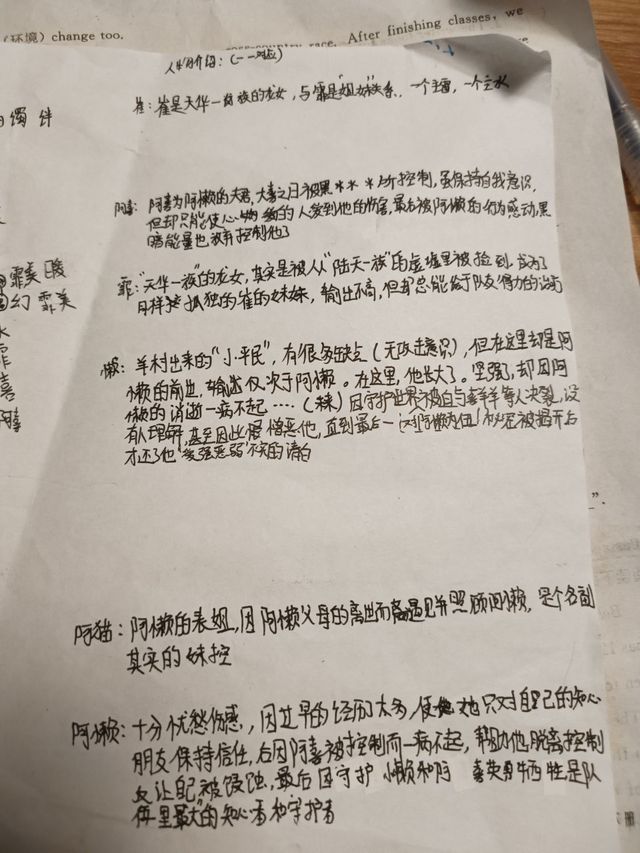 （环境）change too.
race. After finishing classes, we
人物介绍：(一一对应)
崔：崔是天华一族的龙女，与霏是"姐妹"关系。一个主雷，一个主水
伴
阿喜：阿喜为阿懒的夫君，大喜之日被黑＊＊＊所控制，虽保持自我意识，
但却只能使心物的人受到他的伤害，最后被阿懒的行为感动，黑
暗能量也放弃控制他了
霏美 暖
幻 霏美
霏："天华一族"的龙女，其实是被人从"陆天一族"的虚墟里被捡到，成为了
同样孤独的崔的妹妹，输出不高，但却总能给予队友得力的治疗
水
霏
喜
懒：羊村出来的"小平民"，有很多缺点（无攻击意识），但在这里却是阿
懒的前世，输出仅次于阿懒。在这里，他长大了。坚强了，却因阿
懒的消逝一病不起……（秣）因守护世界被迫与喜羊羊等人决裂，没
有人理解，甚至因此憎恶他，直到最后一被揭开后
才还了他"变强恶弱"不知的清白
阿猫：阿懒的表姐，因阿懒父母的离世而遇见并照顾阿懒，是个名副
其实的妹控
阿懒：十分忧愁伤感，因过早的经历太多，使她只对自己的知心
朋友保持信任，后因阿喜被控制而一病不起，帮助他脱离控制
反让自己被侵蚀，最后因守护 懒和阿 喜英勇牺牲，是队
伍里最大的知心者和守护者